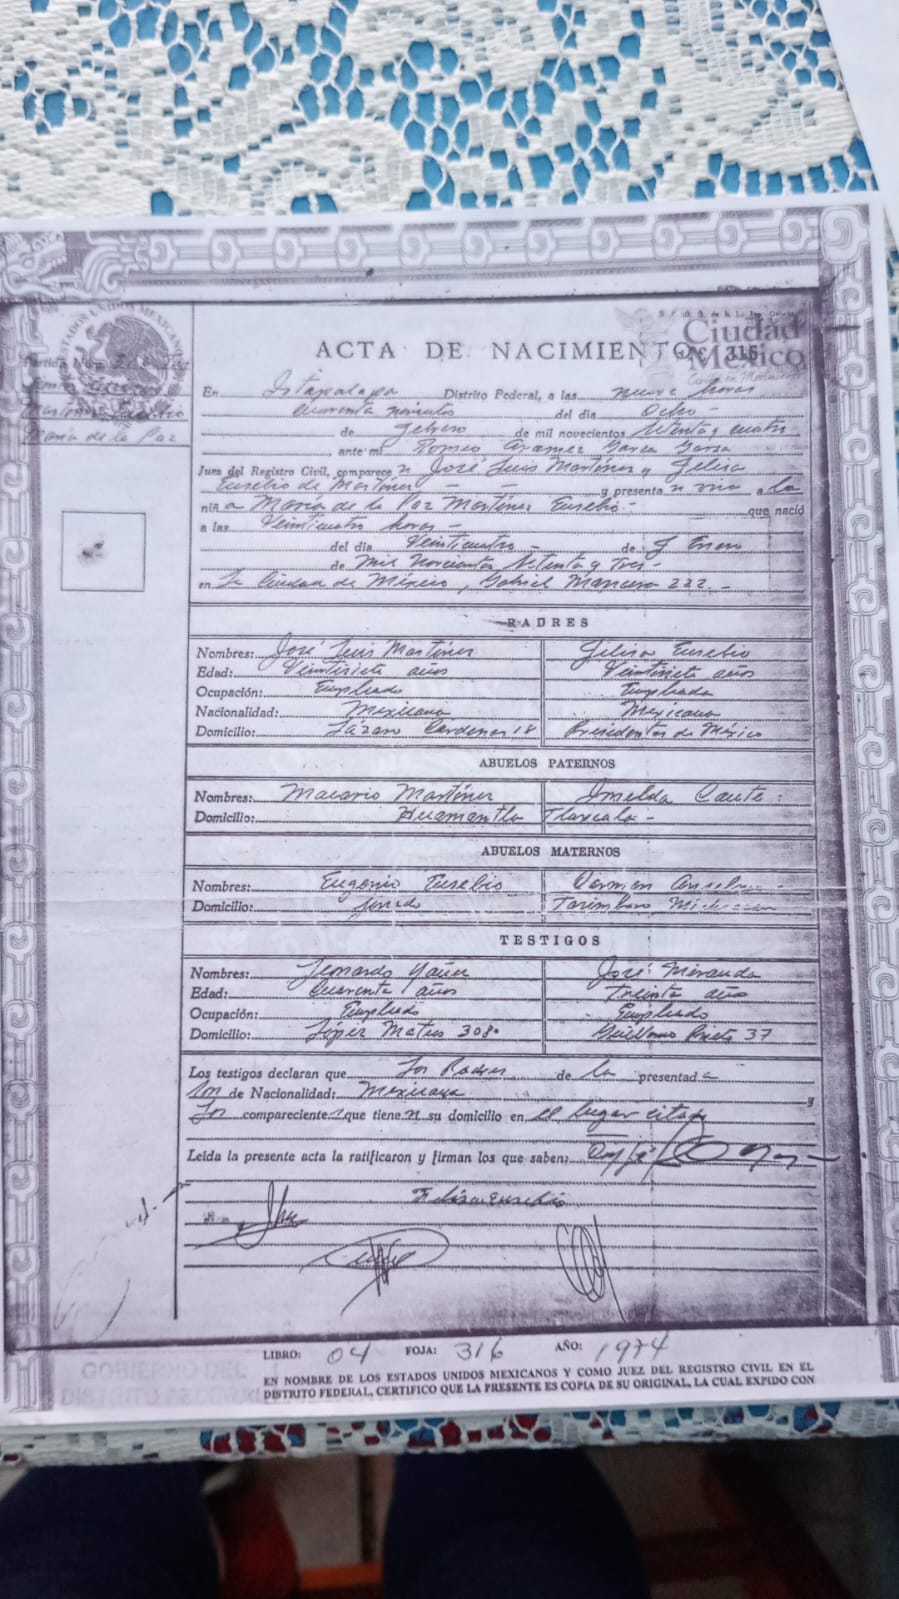 ESTADOS UNIDOS MEXICANOS
Ciudad
México
ACTA DE NACIMIENTO
316
Partida Núm.
Martínez Eusebio
María de la Paz
En Iztapalapa Distrito Federal, a las nueve horas
cuarenta minutos del día Ocho -
de febrero de mil novecientos setenta y cuatro
, ante mi Romeo García Garza
Juez del Registro Civil, comparece n José Luis Martínez y Felisa
Eusebio de Martínez - - y presenta n viva a la
niñ a María de la Paz Martínez Eusebio - que nació
a las Veinticuatro horas -
del día Veinticuatro - de Enero
de Mil Novecientos Setenta y Tres -
en la Ciudad de México, Gabriel Mancera 222 -
PADRES
Nombres: José Luis Martínez Felisa Eusebio
Edad: Veintisiete años Veintisiete años
Ocupación: Empleado Empleada
Nacionalidad: Mexicana Mexicana
Domicilio: Lázaro Cárdenas 18 Presidentes de México
ABUELOS PATERNOS
Nombres: Macario Martínez Imelda
Domicilio: Huamantla Tlaxcala -
ABUELOS MATERNOS
Nombres: Eugenio Eusebio Carmen
Domicilio: Finado Tarimbaro Michoacan
TESTIGOS
Nombres: Leonardo Yañez José Miranda
Edad: Cuarenta años Treinta años
Ocupación: Empleado Empleado
Domicilio: López Mateos 308 Guillermo Prieto 37
Los testigos declaran que Los Padres de la presentad a
son de Nacionalidad: Mexicana y
Los compareciente s que tiene n su domicilio en el lugar citado
Leida la presente acta la ratificaron y firman los que saben:
Felisa Eusebio
LIBRO: 04 FOJA: 316 AÑO: 1974
GOBIERNO DEL
DISTRITO FEDERAL
EN NOMBRE DE LOS ESTADOS UNIDOS MEXICANOS Y COMO JUEZ DEL REGISTRO CIVIL EN EL
DISTRITO FEDERAL, CERTIFICO QUE LA PRESENTE ES COPIA DE SU ORIGINAL, LA CUAL EXPIDO CON